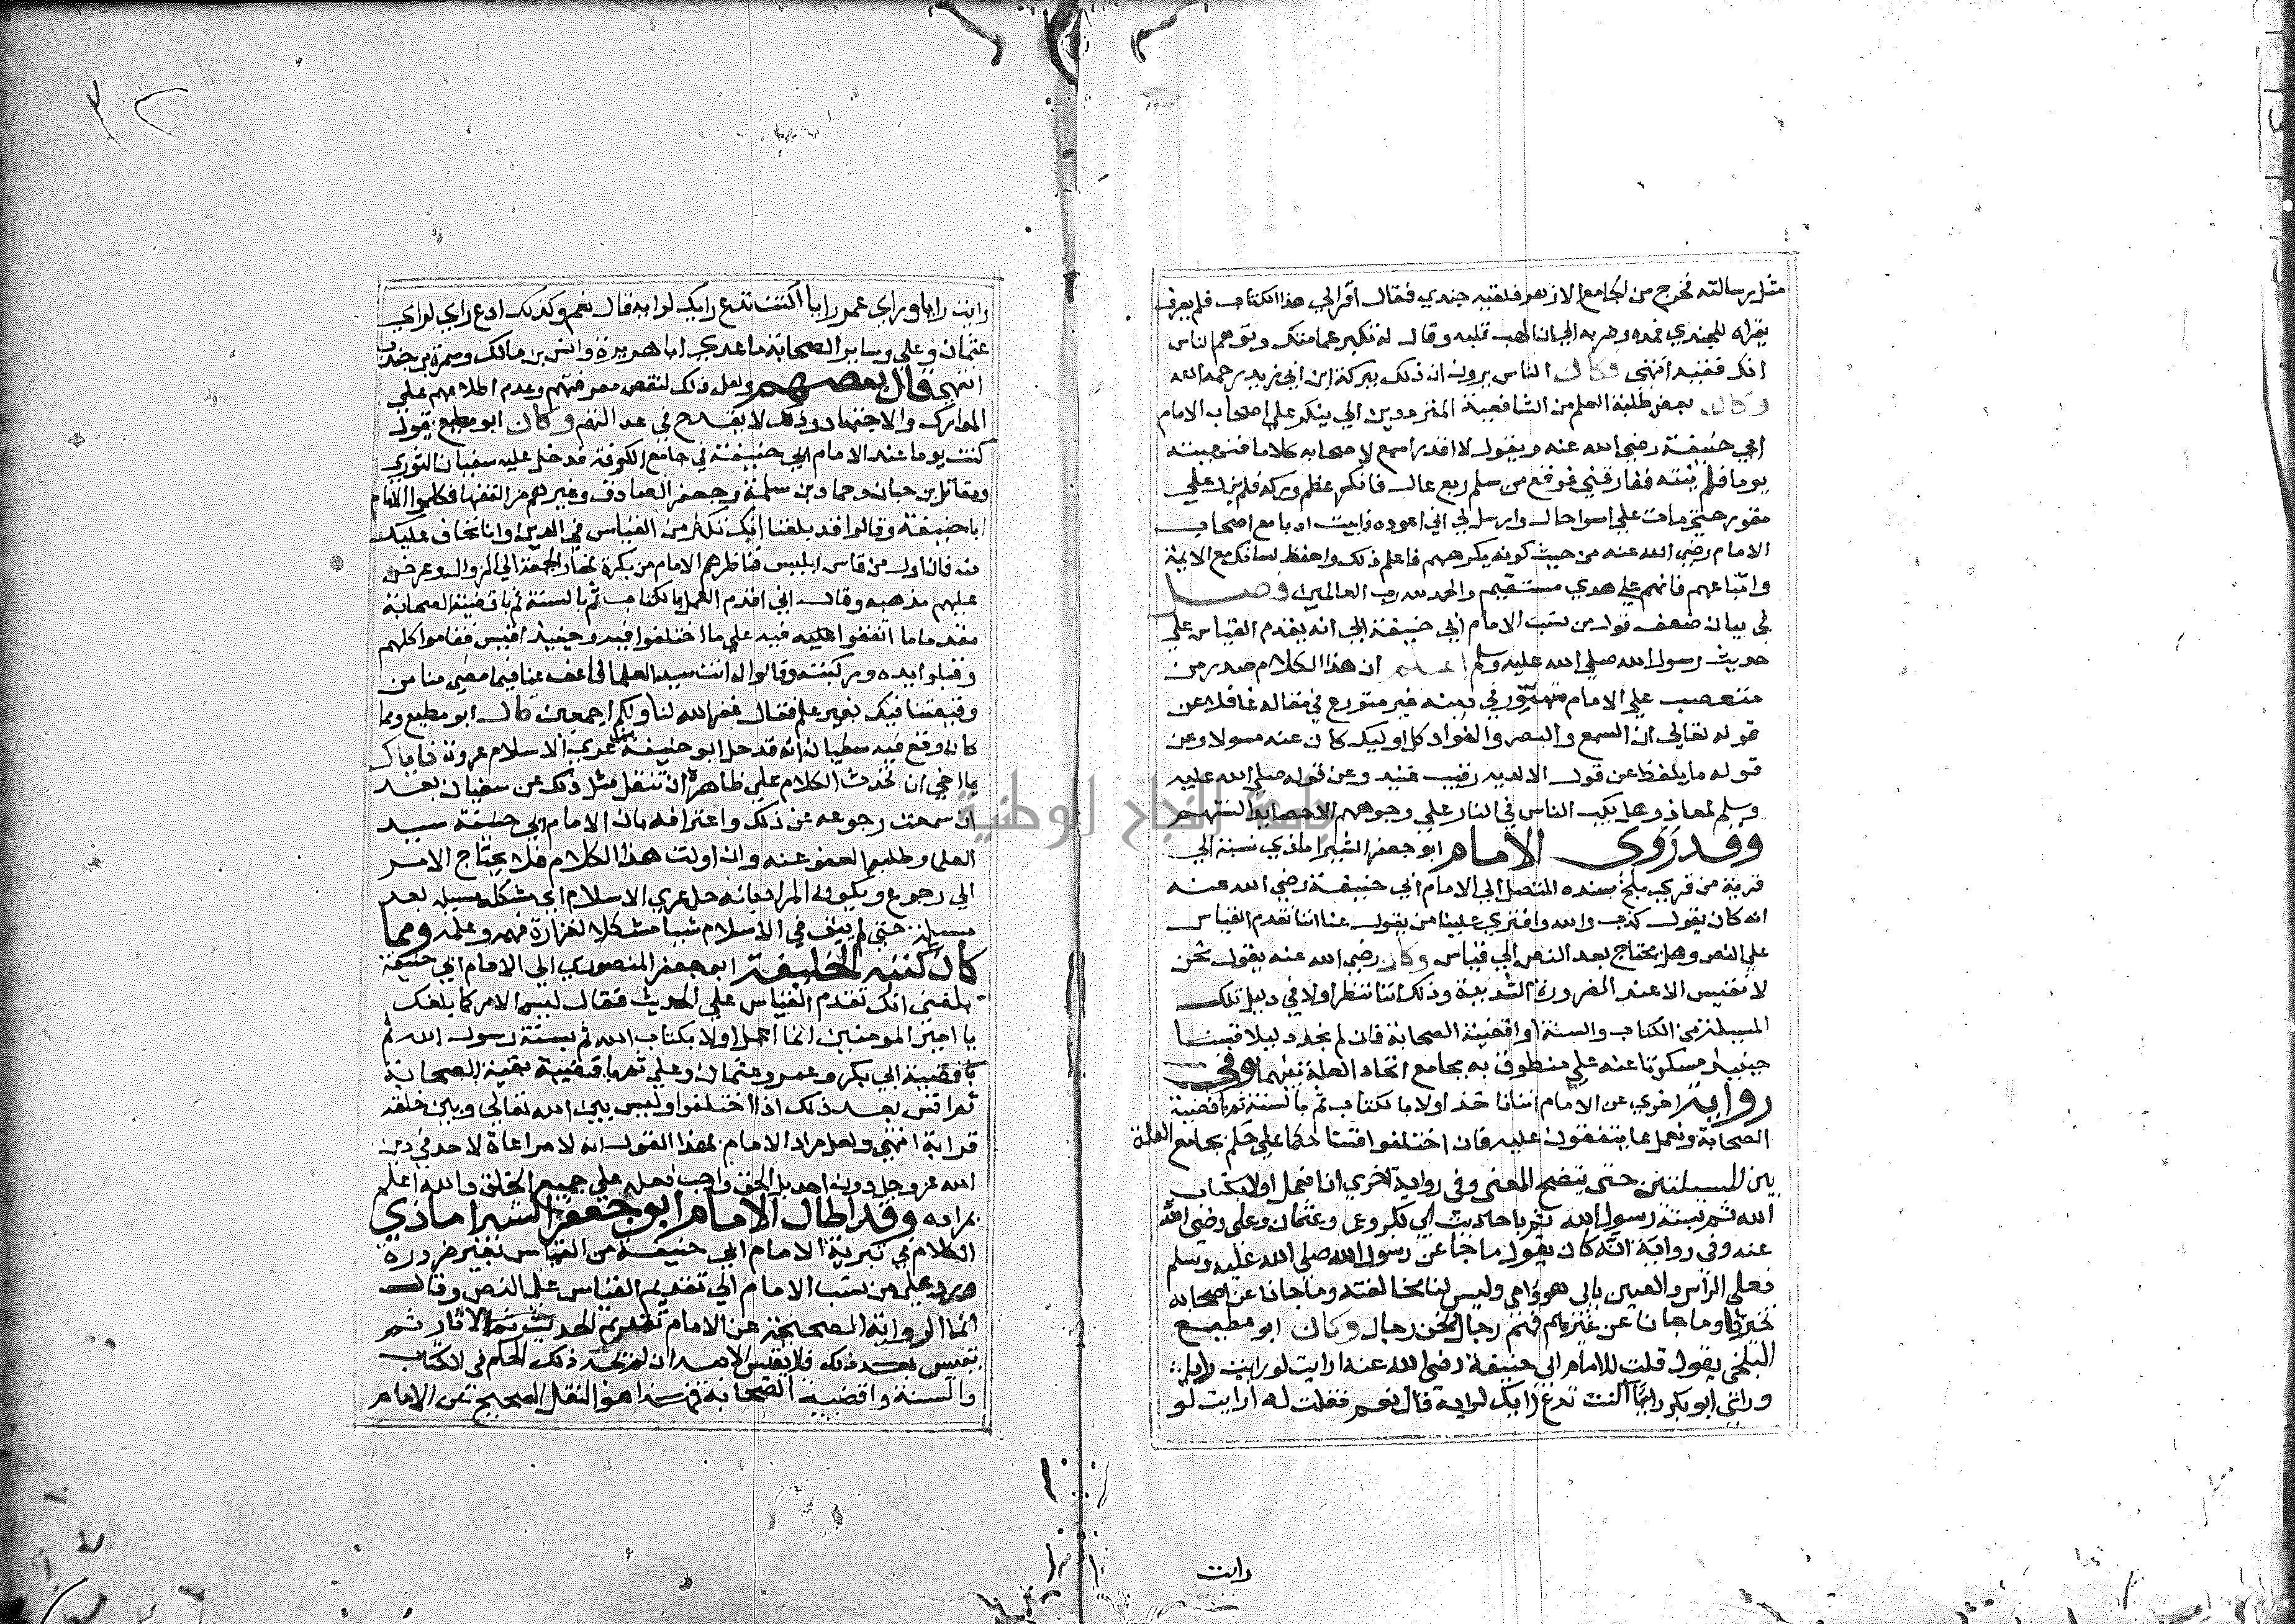 مثل رسالته فخرج من الجامع الازهر فلقيه جندي فقال اقرا لي هذا الكتاب فلم يعرف
يقراه للجندي فمده وضربه الي ان الهب قلبه وقال له تكبر عمامتك وتوهم الناس
انك فقيه انتهي وكان الناس يرون ان ذلك ببركة ابن ابي زيد رحمه الله
وكان بعض طلبة العلم من الشافعية المترددين الي ينكر علي اصحاب الامام
ابي حنيفة رضي الله عنه ويقول لا اقدر اسمع لاصحابه كلاما فنهيته
يوما فلم ينته ففارقني فوقع من سلم ربع عال فانكسر عظم وركه فلم يزل علي
مقور حتي مات علي اسوا حال وارسل لي اني اعوده فابيت ادبا مع اصحاب
الامام رضي الله عنه من حيث كونه يكرههم فاعلم ذلك واحفظ لسانك مع الايمة
واتباعهم فانهم علي هدي مستقيم والحمد لله رب العالمين فصل
في بيان ضعف قول من نسب الامام ابي حنيفة الي انه يقدم القياس علي
حديث رسول الله صلي الله عليه وسلم اعلم ان هذا الكلام صدر من
متعصب علي الامام متهور في دينه غير متورع في مقاله غافلا عن
قوله تعالي ان السمع والبصر والفواد كل اوليك كان عنه مسولا وعن
قوله ما يلفظ من قول الا لديه رقيب عتيد وعن قوله صلي الله عليه
وسلم لمعاذ وهل يكب الناس في النار علي وجوههم الا حصايد السنتهم
وقد روي الامام ابو جعفر الشيراماذي نسبة الي
قرية من قري بلخ بسنده المتصل الي الامام ابي حنيفة رضي الله عنه
انه كان يقول كذب والله وافتري علينا من يقول عنا اننا نقدم القياس
علي النص وهل يحتاج بعد النص الي قياس وكان رضي الله عنه يقول نحن
لا نقيس الا عند الضرورة الشديدة وذلك اننا ننظر اولا في دليل تلك
المسيلة من الكتاب والسنة او اقضية الصحابة فان لم نجد دليلا قسنا
حينيذ مسكوتا عنه علي منطوق به بجامع اتحاد العلة بينهما وفي
رواية اخري عن الامام اننا ناخذ اولا بالكتاب ثم بالسنة ثم باقضية
الصحابة ونعمل بما يتفقون عليه فان اختلفوا قسنا حكما علي حكم بجامع العلة
بين المسيلتين حتي يتضح المعني وفي رواية اخري انا نعمل اولا بكتاب
الله ثم بسنة رسول الله ثم باحاديث ابي بكر وعمر وعثمان وعلي رضي الله
عنه وفي رواية انه كان يقول ما جا عن رسول الله صلي الله عليه وسلم
فعلي الراس والعين بابي هو وامي وليس لنا مخالفته وما جانا عن اصحابه
تخيرنا وما جانا عن غيرهم فهم رجال ونحن رجال وكان ابو مطيع
البلخي يقول قلت للامام ابي حنيفة رضي الله عنه ارايت لو رايت رايا
وراي ابو بكر رايا اكنت تدع رايك لرايه قال نعم فقلت له ارايت لو
رايت
رايت رايا وراي عمر رايا اكنت تدع رايك لرايه قال نعم وكذلك ادع راي لراي
عثمان وعلي وساير الصحابة ما عدي ابا هريرة وانس بن مالك وسمرة بن جندب
انتهي قال بعضهم ولعل ذلك لنقص معرفتهم وعدم اطلاعهم علي
المدارك والاجتهاد وذلك لا يقدح في عدالتهم وكان ابو مطيع يقول
كنت يوما عند الامام ابي حنيفة في جامع الكوفة فدخل عليه سفيان الثوري
ومقاتل بن حيان وحماد بن سلمة وجعفر الصادق وغيرهم من الفقها فكلموا الامام
ابا حنيفة وقالوا قد بلغنا انك تكثر من القياس في الدين وانا نخاف عليك
منه فان اول من قاس ابليس فناظرهم الامام من بكرة نهار الجمعة الي الزوال وعرض
عليهم مذهبه وقال اني اقدم العمل بالكتاب ثم بالسنة ثم باقضية الصحابة
مقدما ما اتفقوا عليه فيه علي ما اختلفوا فيه وحينيذ اقيس فقاموا كلهم
وقبلوا يده وركبته وقالوا له انت سيد العلما فاعف عنا فيما مضي منا من
وقيعتنا فيك بغير علم فقال غفر الله لنا ولكم اجمعين قال ابو مطيع ومما
كان وقع فيه سفيان انه قد حل ابو حنيفة عري الاسلام عروة فاياك
يا اخي ان تحدث الكلام علي ظاهره ان تنقل مثل ذلك عن سفيان بعد
ان سمعت رجوعه عن ذلك واعترافه بان الامام ابي حنيفة سيد
العلما وطلبهم العفو عنه وان اولت هذا الكلام فلا يحتاج الامر
الي رجوع ويكون المراد بانه حل عري الاسلام اي مشكله مسيلة بعد
مسيلة حتي لم يبق في الاسلام شيا مشكلا لغزارة فهمه وعلمه ومما
كان كتبه الخليفة ابو جعفر المنصوري الي الامام ابي حنيفة
بلغني انك تقدم القياس علي الحديث فقال ليس الامر كما بلغك
يا امير المومنين انما اعمل اولا بكتاب الله ثم بسنة رسول الله ثم
باقضية ابي بكر وعمر وعثمان وعلي ثم باقضية بقية الصحابة
ثم اقس بعد ذلك اذا اختلفوا وليس بين الله تعالي وبين خلقه
قرابة انتهي ولعل مراد الامام بهذا القول انه لا مراعاة لاحد في دين
الله عز وجل دون احد بل الحق واجب فعله علي جميع الخلق والله اعلم
بمراده وقد اطال الامام ابو جعفر الشيراماذي
الكلام في تبرية الامام ابي حنيفة من القياس بغير ضرورة
ورد علي من نسب الامام الي تقديم القياس علي النص وقال
انما الرواية الصحيحة عن الامام تقديم الحديث ثم الاثار ثم
يقيس بعد ذلك فلا يقيس الا بعد ان لم يجد ذلك الحكم في الكتاب
والسنة واقضية الصحابة فهذا هو النقل الصحيح عن الامام
جامعة النجاح الوطنية